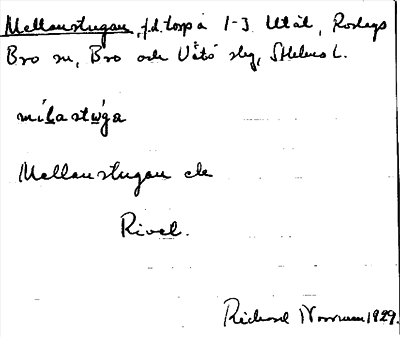 Mellanstugan, f.d. torp å 1-3 Utål, Roslags
Bro sn, Bro och Vätö slg, Sthlms l.
mílastẃga
Mellanstugan ele
Rivel.
Richard Norrman 1929.